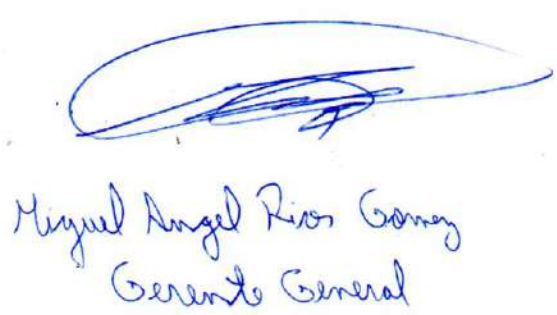 Miguel Angel Rios Gomez
Gerente General